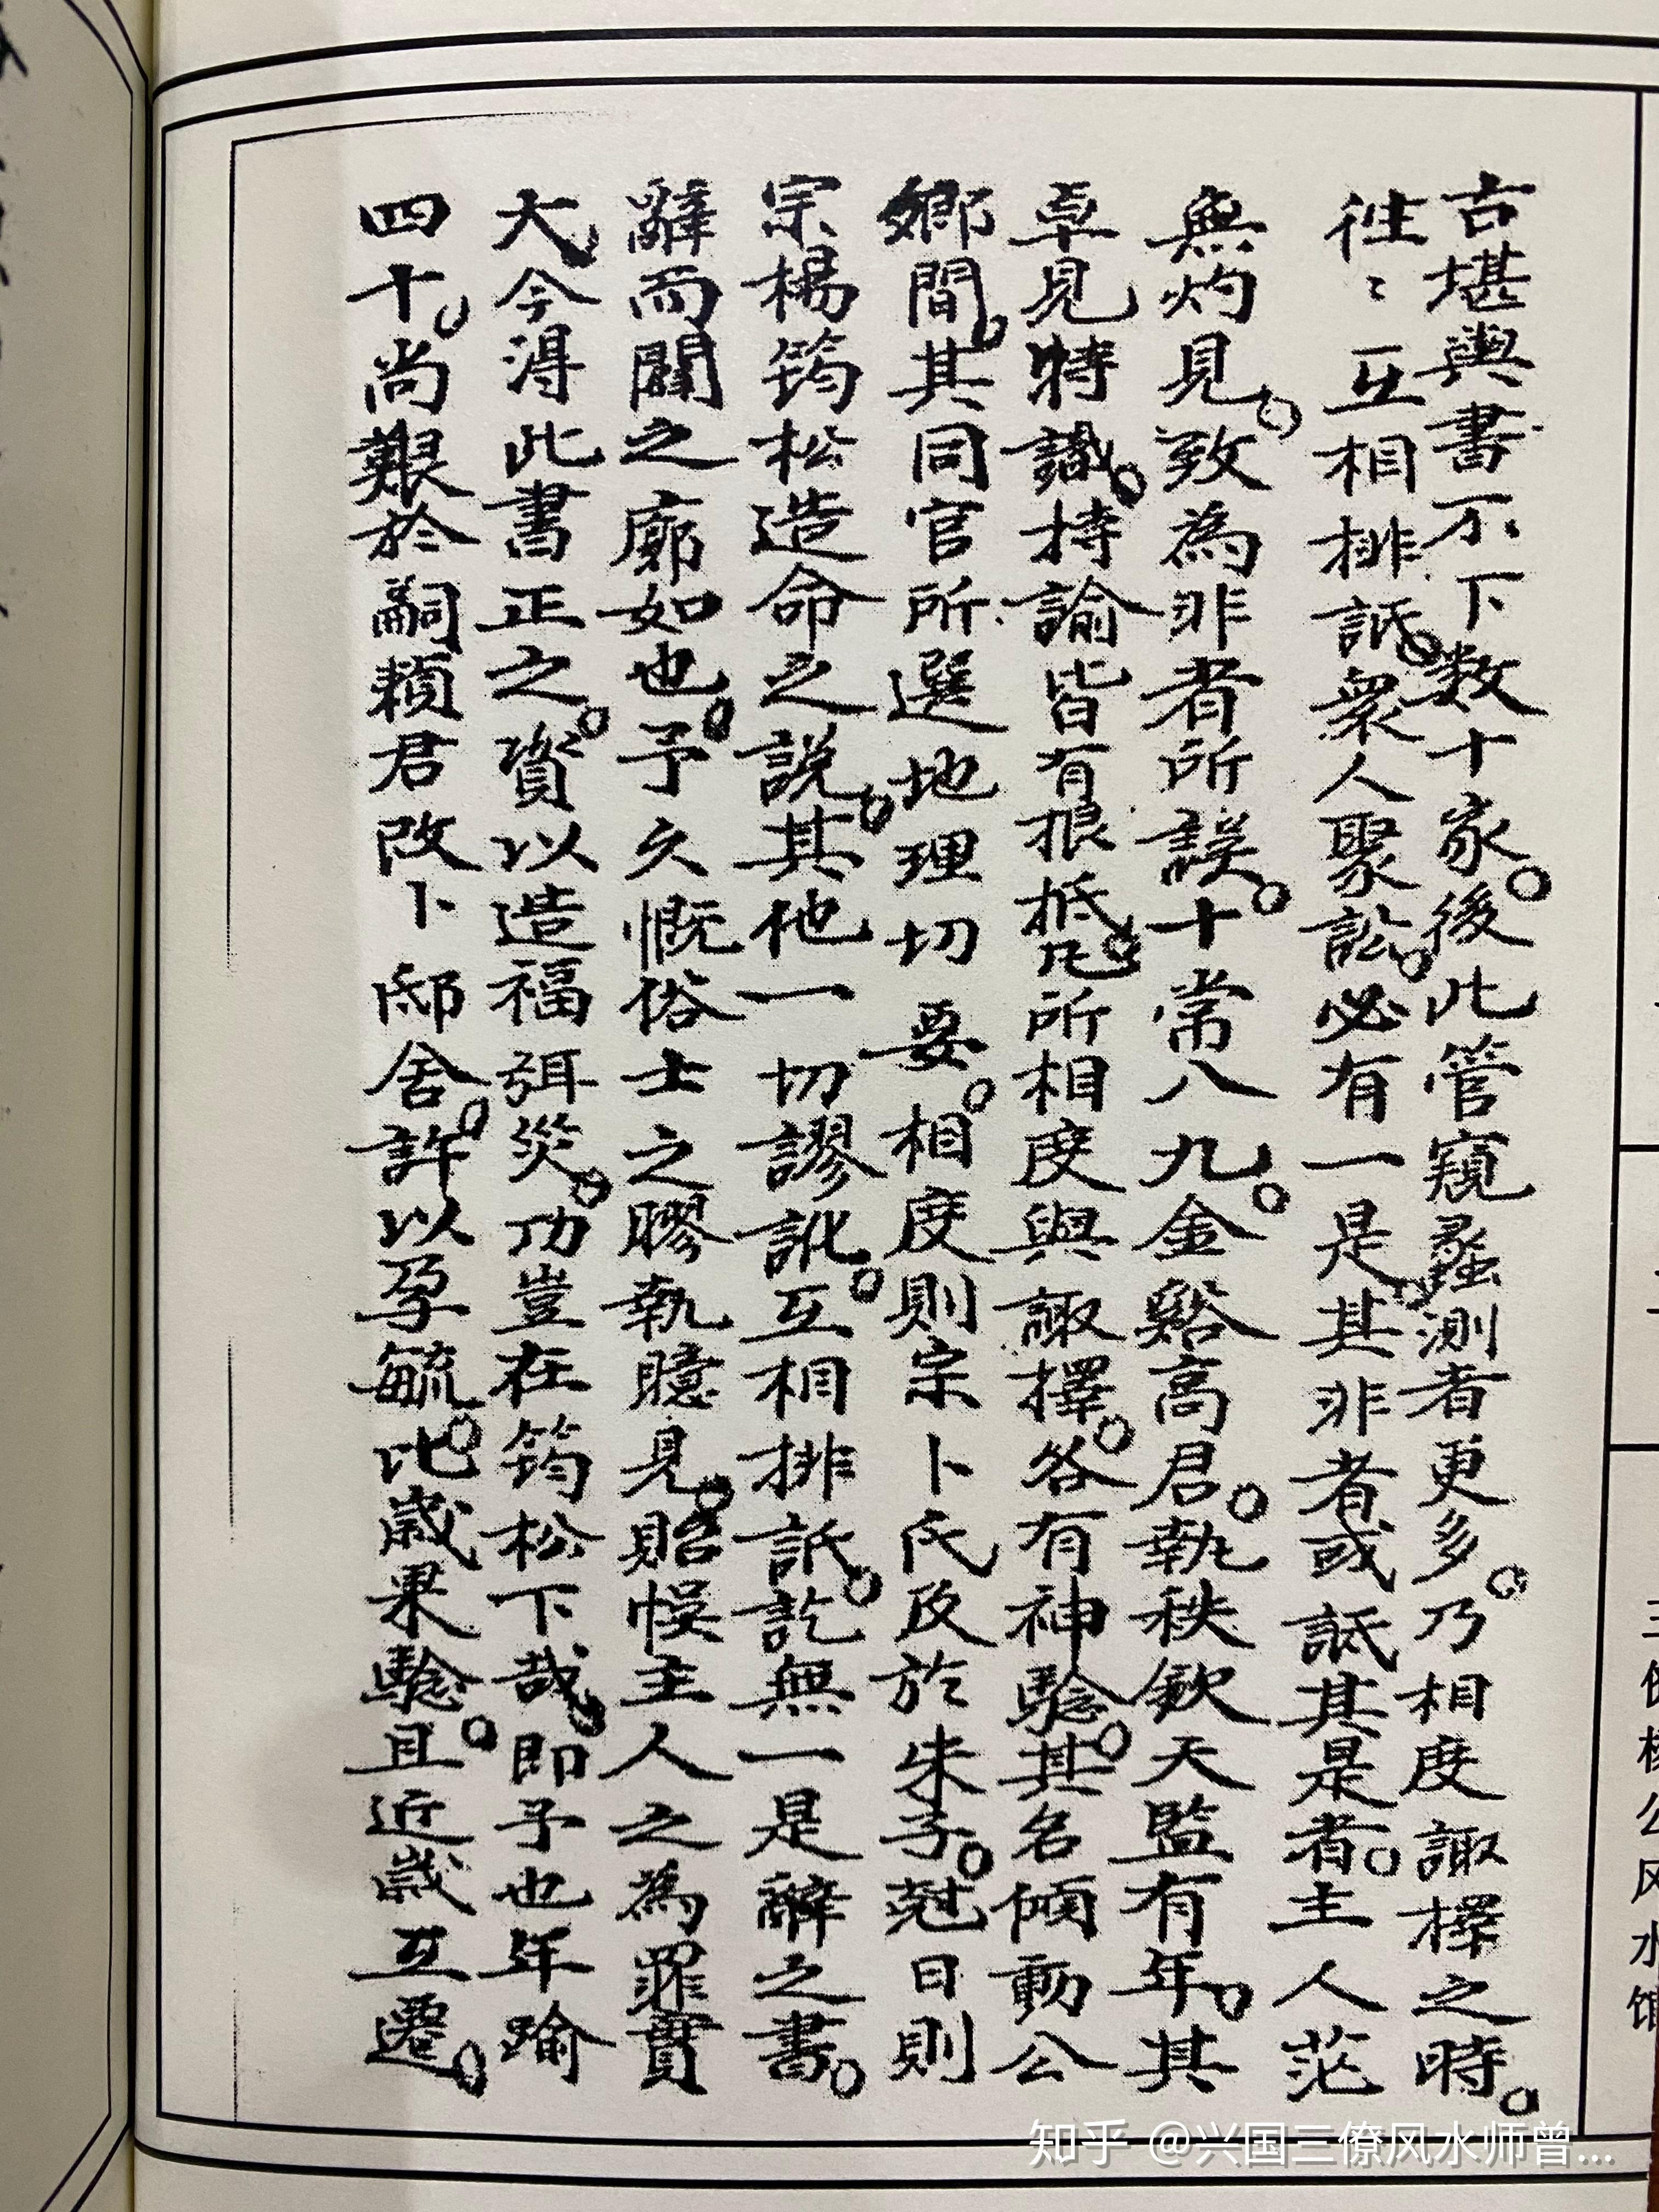 古堪輿書不下数十家。後此管窺蠡測者更多。乃相度諏擇之時。
徃〻互相排詆。衆人聚訟。必有一是。其非者或詆其是者。主人茫
無灼見。致為非者所誤。十常八九。金谿高君。執秩欽天監有年。其
卓見特識。持論皆有根抵。凡所相度與諏擇。各有神驗。其名傾動公
鄉間。其同官所選地理切要。相度則宗卜氏及於朱子。尅日則
宗楊筠松造命之說。其他一切謬訛。互相排詆。訖無一是辭之書。
辭而闢之廓如也。予久慨俗士之膠執臆見。貽悮主人之為罪實
大。今淂此書正之。資以造福弭災。功豈在筠松下哉。即予也年踰
四十。尚艱於嗣頼君改卜邸舍。許以孕毓。比歲果驗。且近歲互遷。
三僚楊公风水馆
知乎 @兴国三僚风水师曾...